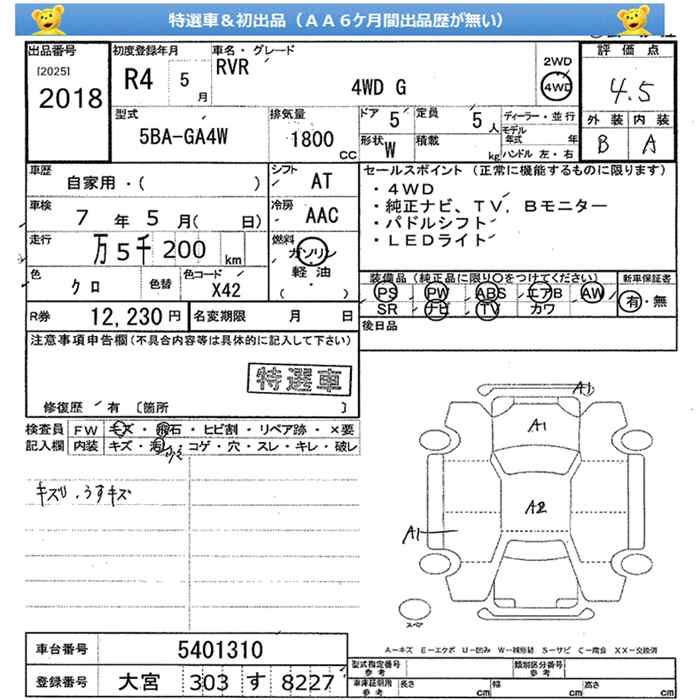 特選車＆初出品（ＡＡ６ケ月間出品歴が無い）
出品番号 初度登録年月 車名・グレード 評価点
[2025] R4 5月 RVR 2WD 4WD
2018 4WD G 4.5
型式 排気量 ドア 5 定員 5人 ディーラー・並行 外装 内装
5BA-GA4W 1800cc 形状 W 積載 kg モデル年式 年 B A
ハンドル 左・右
車歴 自家用・( ) シフト AT セールスポイント（正常に機能するものに限ります）
・４WD
車検 7年5月(日) 冷房 AAC ・純正ナビ、ＴＶ，Ｂモニター
・パドルシフト
走行 万5千200km 燃料 ガソリン ・ＬＥＤライト
軽油
・( )
色 クロ 色替 色コード X42 装備品（純正品に限り〇をつけてください） 新車保証書
PS PW ABS エアB AW 有・無
R券 12,230円 名変期限 月 日 SR ナビ TV カワ
注意事項申告欄(不具合内容等は具体的に記入して下さい) 後日品
特選車
修復歴 有 〔箇所 〕
検査員 FW キズ・飛石・ヒビ割・リペア跡・×要
記入欄 内装 キズ・汚れ・コゲ・穴・スレ・キレ・破レ
キズU.うすキズ
A1
A1
A2
A1
スペア
A－キズ E－エクボ U－凹み W－補修跡 S－サビ C－腐食 XX－交換済
車台番号 5401310
型式指定番号 参考 類別区分番号 参考
登録番号 大宮 303 す 8227
車庫証明用 参考 長さ cm 幅 cm 高さ cm